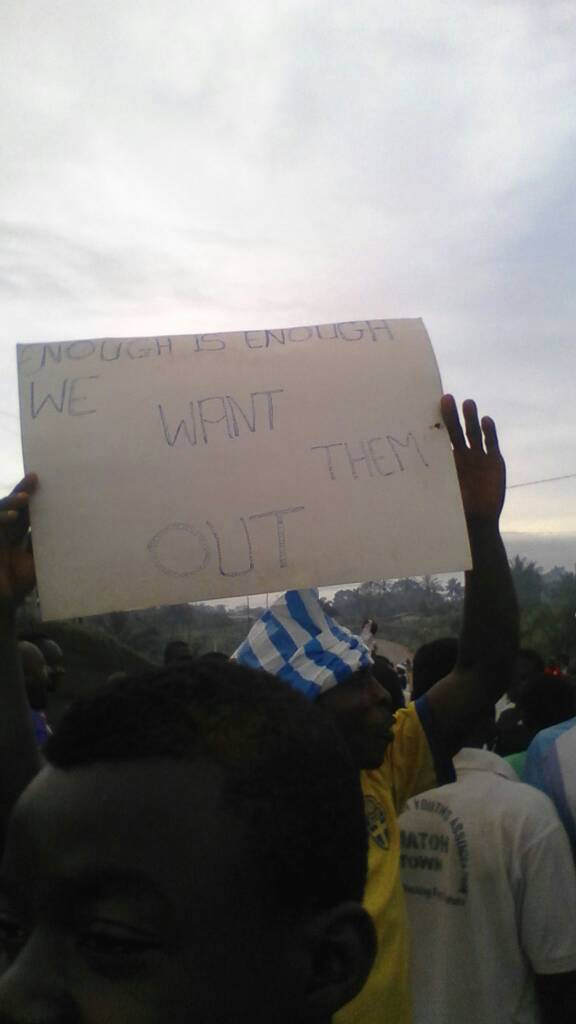 ENOUGH IS ENOUGH
WE WANT THEM
OUT
YOUTHS
TOWN